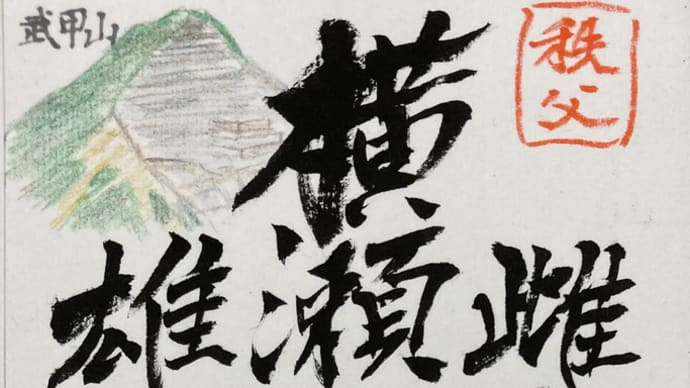 武甲山
秩父
横瀬
雄
雌